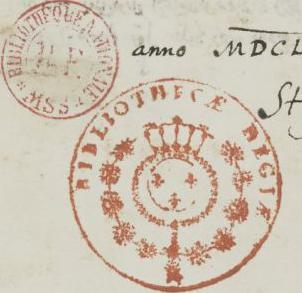 BIBLIOTHEQUE NATIONALE MSS
R F
anno MDCL
St
BIBLIOTHECÆ REGIÆ